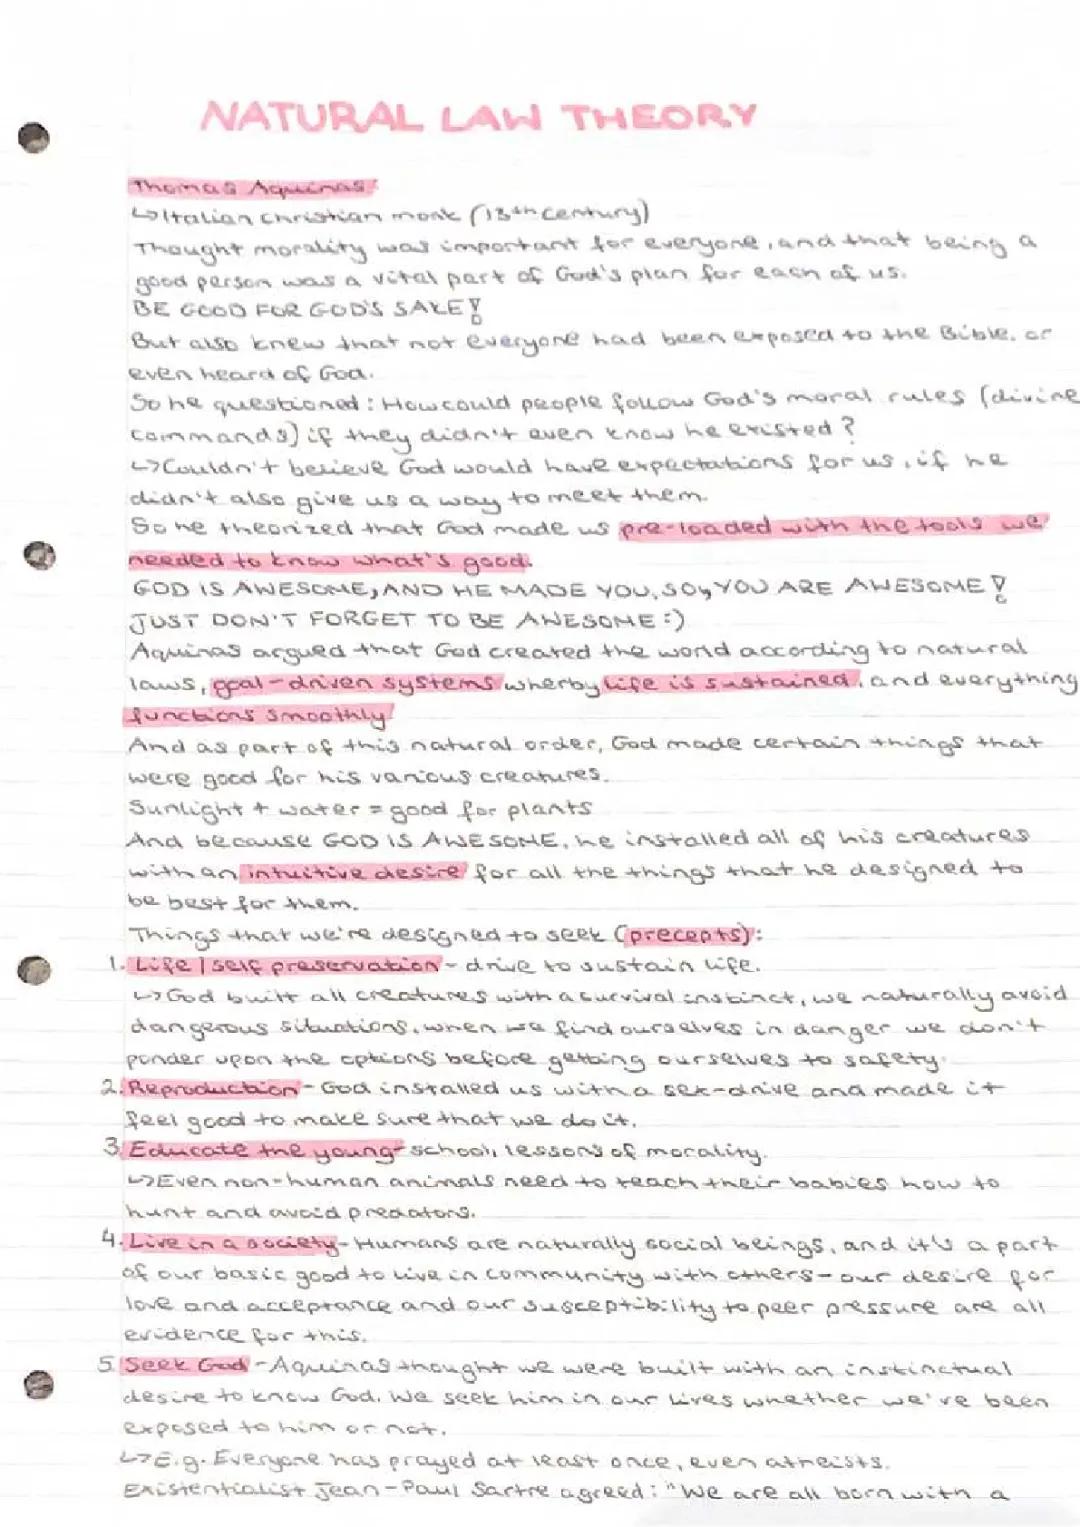 NATURAL LAW THEORY
Thomas Aquinas:
↳Italian Christian monk (13th century)
Thought morality was important for everyone, and that being a
good person was a vital part of God's plan for each of us.
BE GOOD FOR GOD'S SAKE!
But also knew that not everyone had been exposed to the Bible, or
even heard of God.
So he questioned: How could people follow God's moral rules (divine
commands) if they didn't even know he existed?
↳Couldn't believe God would have expectations for us, if he
didn't also give us a way to meet them.
So he theorized that God made us pre-loaded with the tools we
needed to know what's good.
GOD IS AWESOME, AND HE MADE YOU, SO, YOU ARE AWESOME!
JUST DON'T FORGET TO BE AWESOME :)
Aquinas argued that God created the world according to natural
laws, goal-driven systems wherby life is sustained, and everything
functions smoothly.
And as part of this natural order, God made certain things that
were good for his various creatures.
Sunlight + water = good for plants
And because GOD IS AWESOME, he installed all of his creatures
with an intuitive desire for all the things that he designed to
be best for them.
Things that we're designed to seek (precepts):
1. Life / self preservation - drive to sustain life.
↳God built all creatures with a survival instinct, we naturally avoid
dangerous situations, when we find ourselves in danger we don't
ponder upon the options before getting ourselves to safety.
2. Reproduction - God installed us with a sex-drive and made it
feel good to make sure that we do it.
3. Educate the young - school, lessons of morality.
↳Even non-human animals need to teach their babies how to
hunt and avoid predators.
4. Live in a society - Humans are naturally social beings, and it's a part
of our basic good to live in community with others - our desire for
love and acceptance and our susceptibility to peer pressure are all
evidence for this.
5. Seek God - Aquinas thought we were built with an instinctual
desire to know God. We seek him in our lives whether we've been
exposed to him or not.
↳E.g. Everyone has prayed at least once, even atheists.
Existentialist Jean-Paul Sartre agreed: "We are all born with a